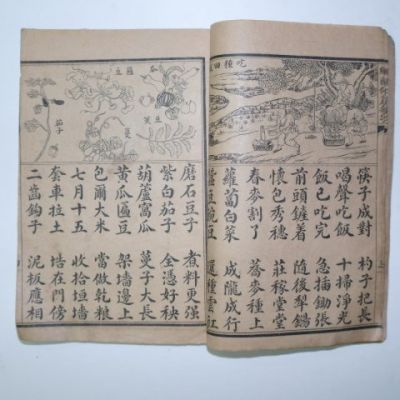 吃種田
筷子成對 杓子把長
喝聲吃飯 十掃淨光
飯已吃完 急插鋤張
前頭鏟着 隨後犁鍚
懷包秀穗 莊稼堂堂
春麥割了 蕎麥種上
蘿蔔白菜 成隴成行
豌豆
瓜
豆
茄子
磨石豆子 煮料更强
紫白茄子 金憑好秧
葫蘆窩瓜 菓子大長
黃瓜匾豆 架墻邊上
包爾大米 當做乾糧
七月十五 收拾垣墻
套車拉土 堆在門傍
二齒鉤子 泥板應相